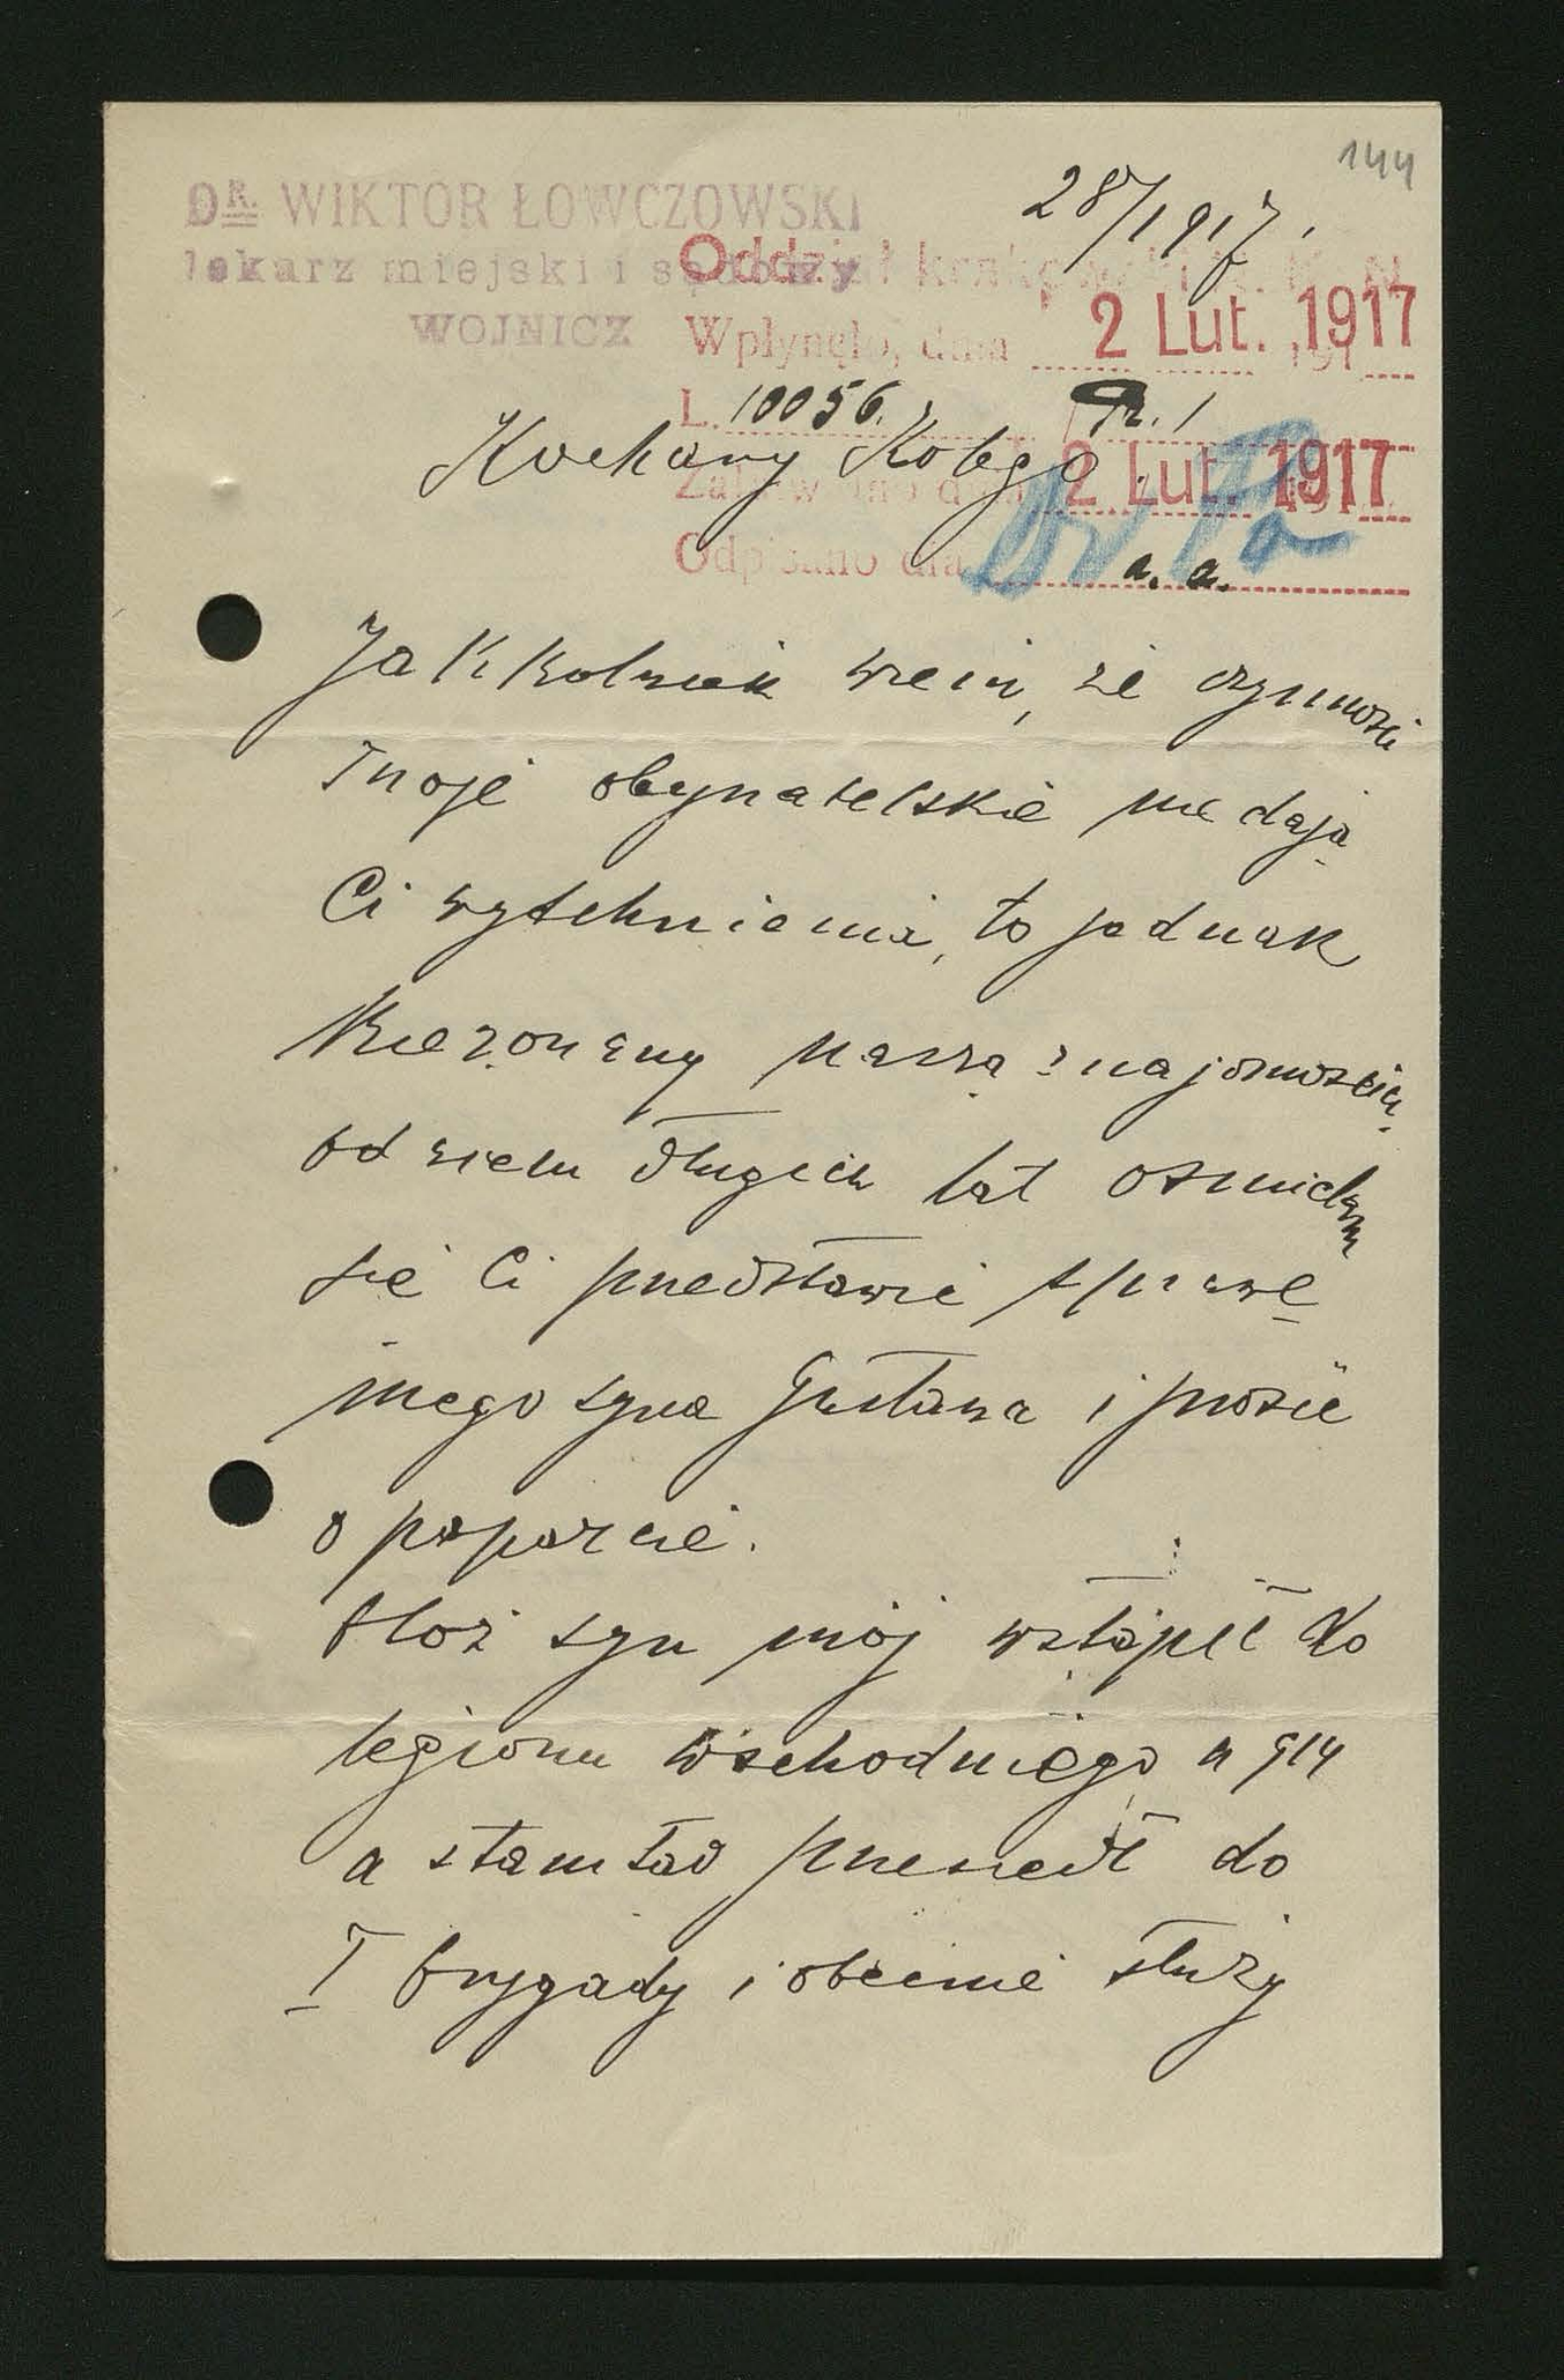 144
DR. WIKTOR ŁOWCZOWSKI
lekarz miejski i sądowy
WOJNICZ
28/1 917.
Oddział krakowski N. K. N.
Wpłynęło, dnia 2 Lut. 1917 191
L. 10056.
Kochany Kolego.
Załatwiono dnia 2 Lut. 1917 191
Odpisano dnia a. a.
Jakkolwiek wiem, że czynności
Twoje obywatelskie nie dają
Ci wytchnienia, to jednak
naszą znajomością
od wielu długich lat ośmielam
się Ci przedstawić sprawę
mego syna Gustawa i prosić
o poparcie.
Otoż syn mój wstąpił do
legionu wschodniego w 914
a stamtąd przeszedł do
I brygady i obecnie służy